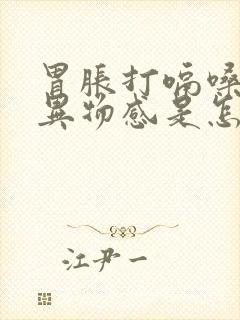 胃胀打嗝嗓
异物感是怎
江尹一